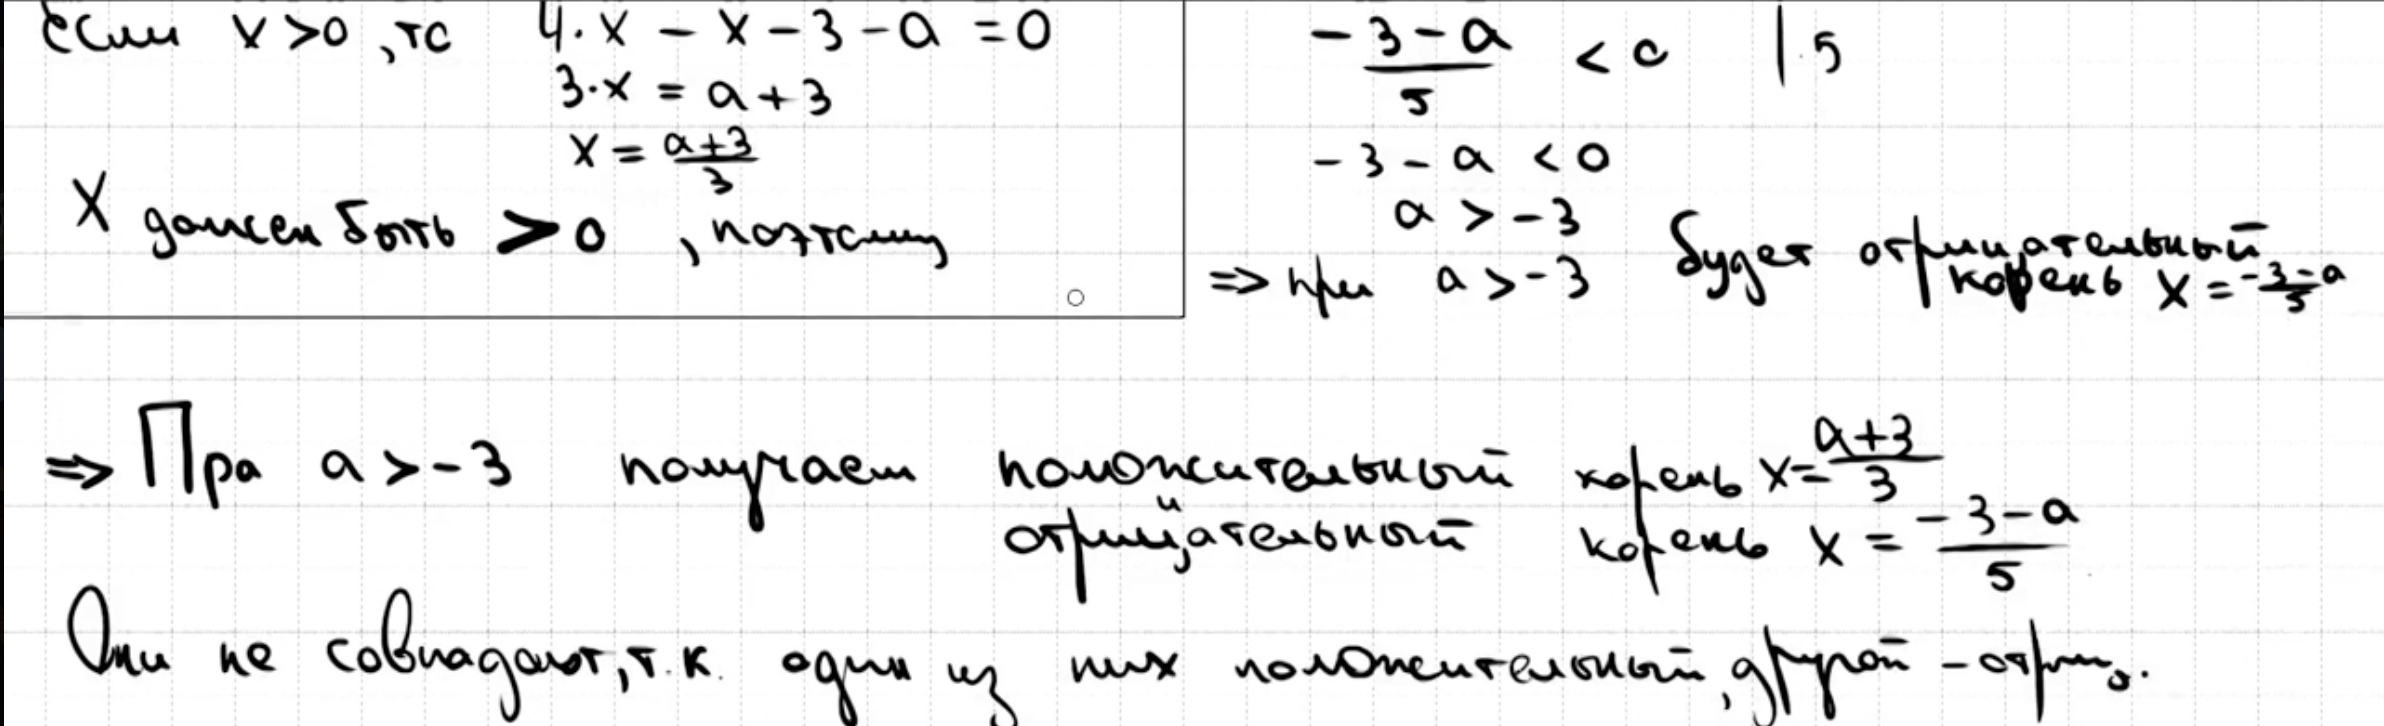 если x>0, то 4·x - x - 3 - a = 0
3·x = a + 3
x = \frac{a+3}{3}
X должен быть > 0, поэтому
\frac{-3-a}{5} < 0 | ·5
-3 - a < 0
a > -3
=> при a > -3 будет отрицательный
корень x = \frac{-3-a}{5}
=> Пра a > -3 получаем положительный корень x = \frac{a+3}{3}
и
отрицательный корень x = \frac{-3-a}{5}
Они не совпадают, т.к. один из них положительный, другой - отриц.